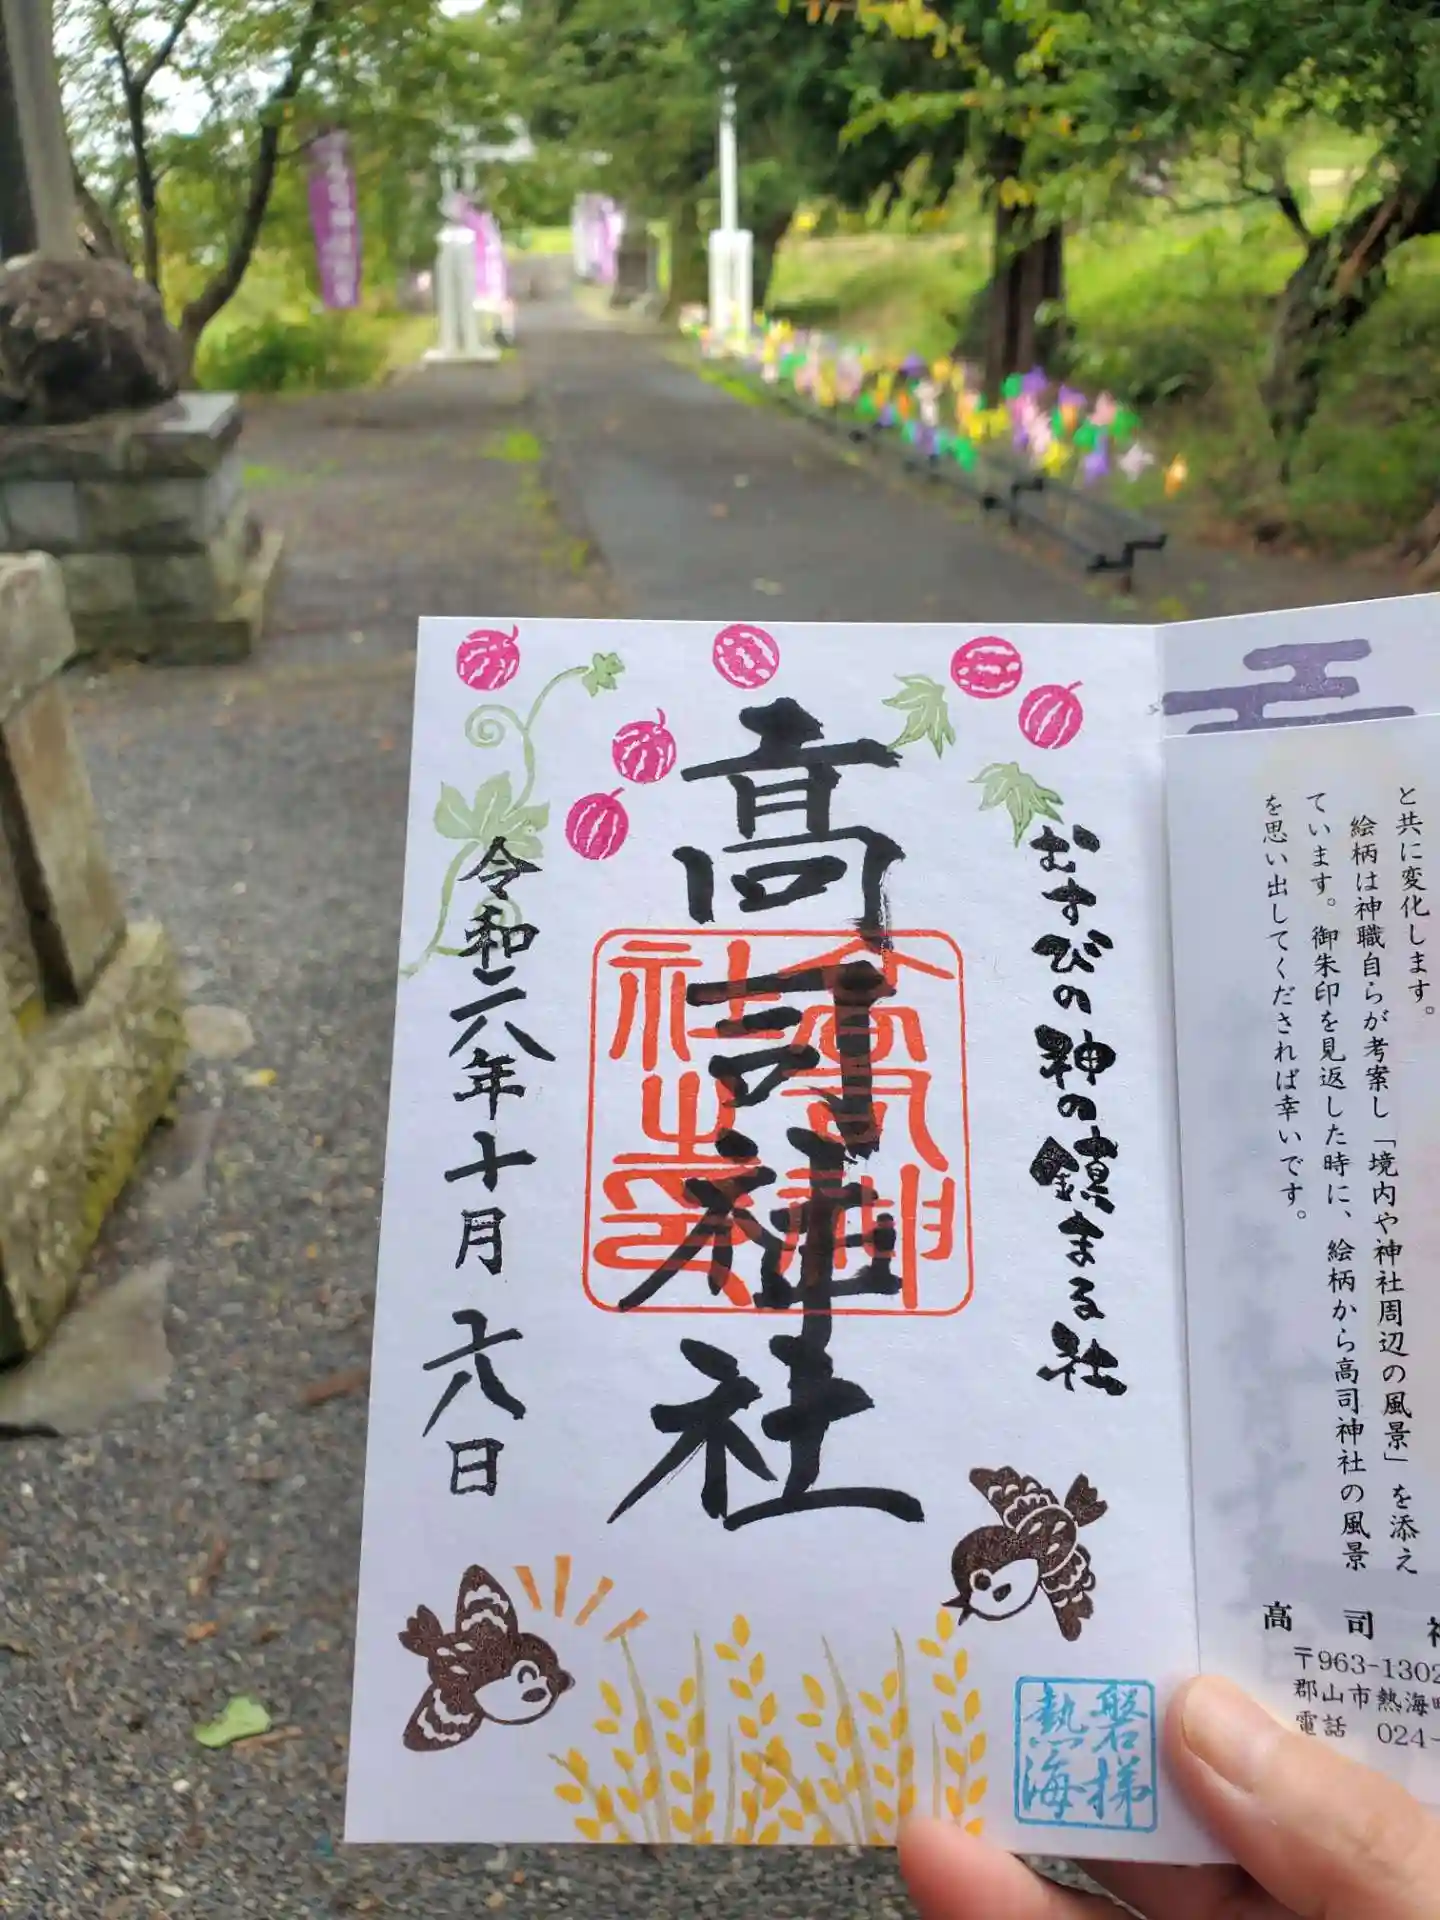 と共に変化します。
絵柄は神職自らが考案し「境内や神社周辺の風景」を添え
ています。御朱印を見返した時に、絵柄から高司神社の風景
を思い出してくだされば幸いです。
高司神
〒963-1302
郡山市熱海町
電話 024-
むすびの神の鎮まる社
高司神社
高司神
社之印
令和六年十月十八日
磐梯
熱海